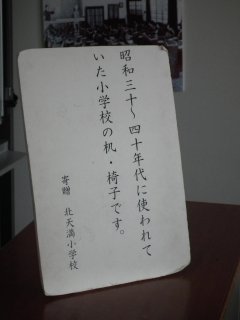 昭和三十～四十年代に使われて
いた小学校の机・椅子です。
寄贈　北天満小学校